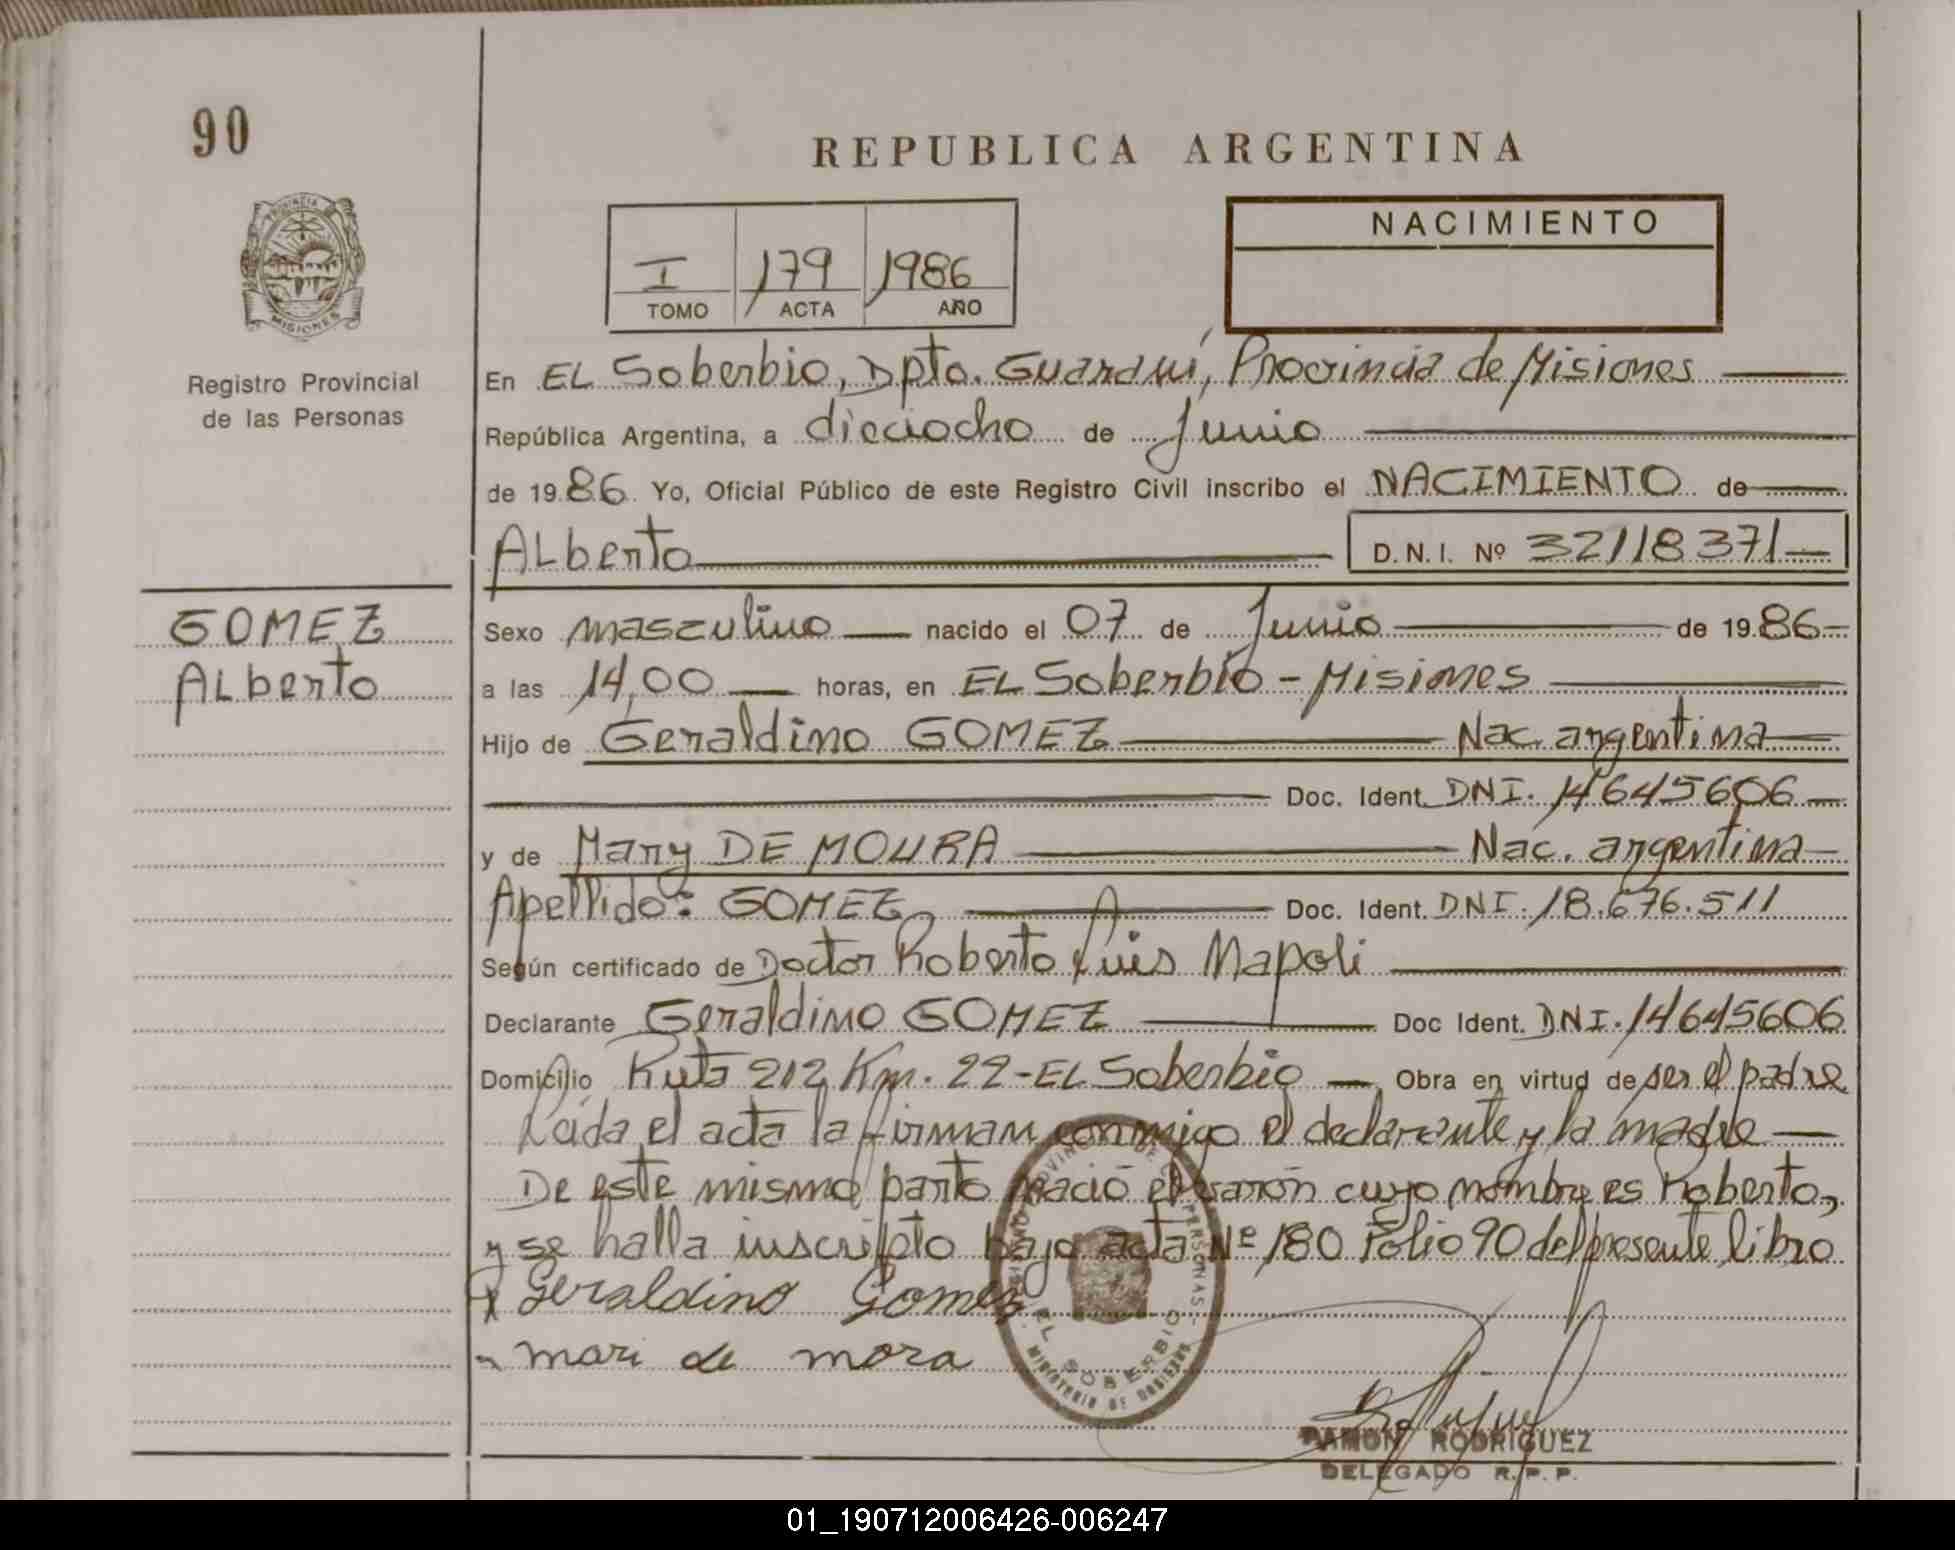 90
REPUBLICA ARGENTINA
PROVINCIA
MISIONES
Registro Provincial
de las Personas
I 179 1986
TOMO ACTA AÑO
NACIMIENTO
En EL Soberbio, Dpto. Guaraní, Provincia de Misiones
República Argentina, a dieciocho de Junio
de 1986 Yo, Oficial Público de este Registro Civil inscribo el NACIMIENTO de
ALberto D.N.I. Nº 32118371
GOMEZ
ALberto
Sexo masculino nacido el 07 de Junio de 1986
a las 14,00 horas, en EL Soberbio - Misiones
Hijo de Geraldino GOMEZ Nac. argentina
Doc. Ident. DNI. 14645606
y de Mary DE MOURA Nac. argentina
Apellido: GOMEZ Doc. Ident. DNI. 18.676.511
Según certificado de Doctor Roberto Luis Napoli
Declarante Geraldino GOMEZ Doc Ident. DNI. 14645606
Domicilio Ruta 212 Km. 22-EL Soberbio Obra en virtud de ser el padre
Leída el acta la firman conmigo el declarante y la madre
De este mismo parto nació el varón cuyo nombre es Roberto,
y se halla inscripto bajo acta Nº 180 Folio 90 del presente libro
Geraldino Gomez
mari de mora
EL SOBERBIO
MINISTERIO DE GOBIERNO
RAMON RODRIGUEZ
DELEGADO R.P.P.
01_190712006426-006247